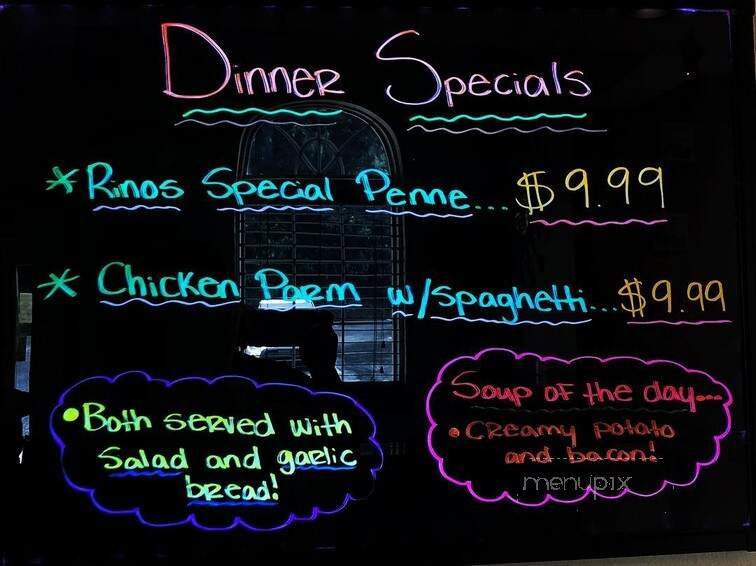 Dinner Specials
* Rinos Special Penne... $9.99
* Chicken Parm w/spaghetti... $9.99
• Both served with
Salad and garlic
bread!
Soup of the day...
• Creamy potato
and bacon!
menupix